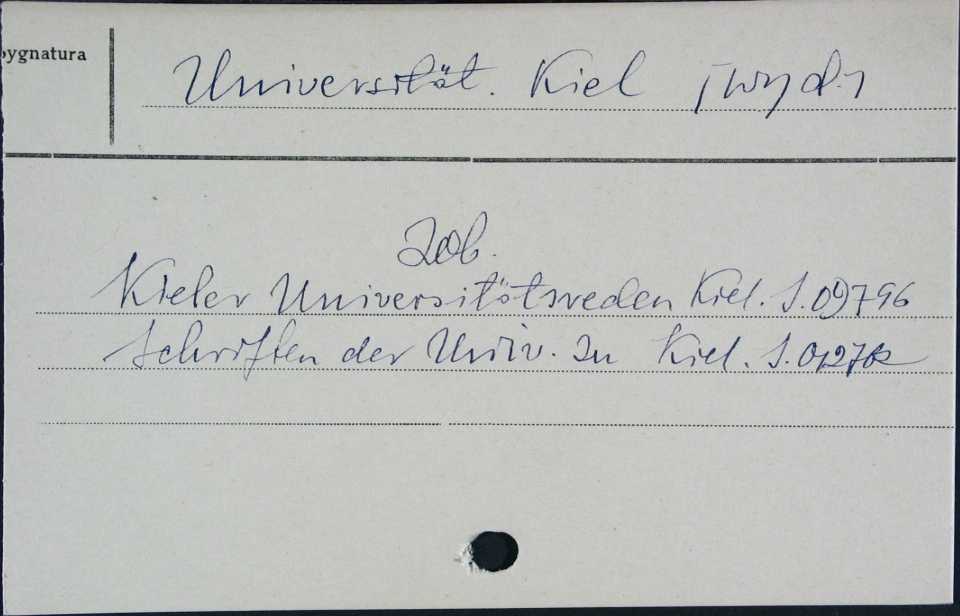 Sygnatura
Universität. Kiel [wyd.]
Zob.
Kieler Universitätsreden Kiel. S. 09796
Schriften der Univ. zu Kiel. S.